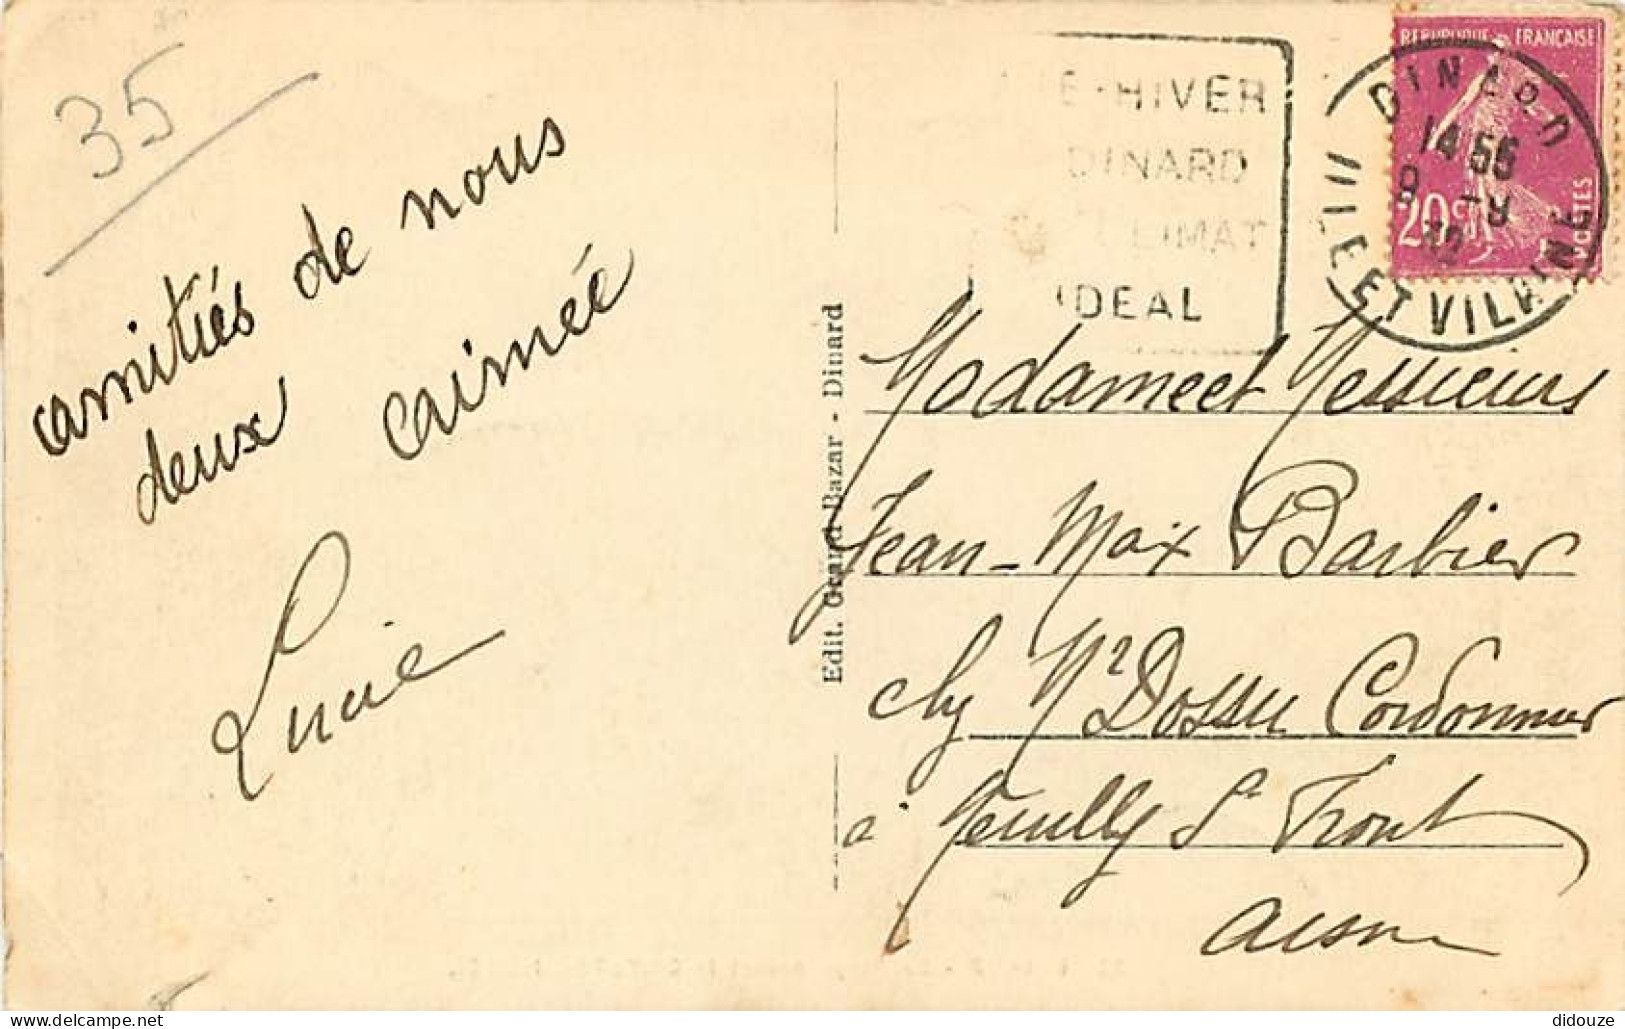 35
amitiés de nous
deux aimée
Lucie
Edit. Grand Bazar - Dinard
E-HIVER
DINARD
CLIMAT
IDEAL
REPUBLIQUE FRANÇAISE
20c
POSTES
DINARD
14 55
9 -8
32
ILLE ET VILAINE
Madame et Messieurs
Jean-Max Barbier
chz Mr Dossu Cordonnier
à Neuilly St Front
Aisne
didouze